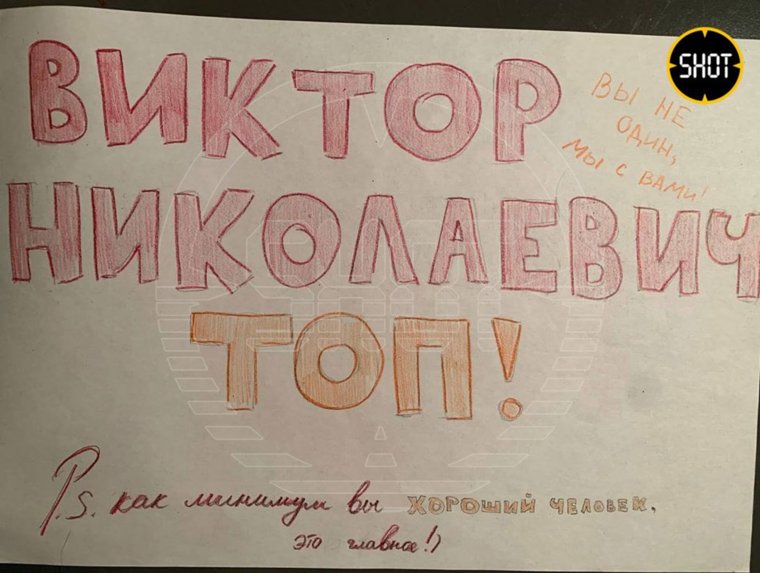 SHOT
ВИКТОР
НИКОЛАЕВИЧ
ТОП!
ВЫ НЕ
ОДИН,
МЫ С ВАМИ!
P.S. как минимум вы ХОРОШИЙ ЧЕЛОВЕК,
это главное!)